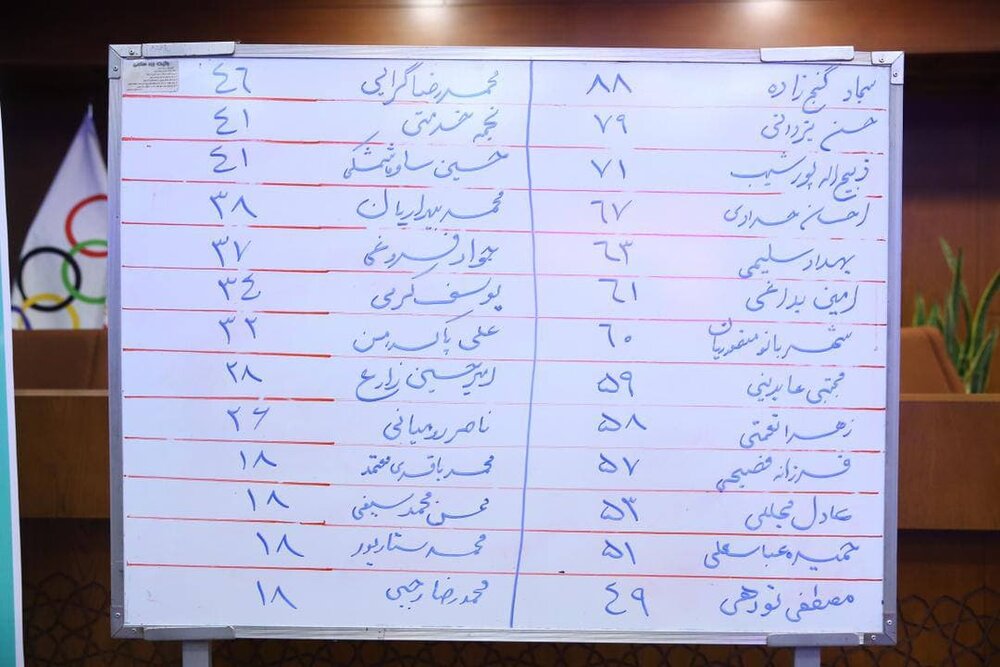 سجاد گنج زاده ۸۸
حسن یزدانی ۷۹
ذبیح اله پورشیب ۷۱
احسان حدادی ۶۷
بهداد سلیمی ۶۳
امین بداغی ۶۱
شهربانو منصوریان ۶۰
مجتبی عابدینی ۵۹
زهرا نعمتی ۵۸
فرزانه فصیحی ۵۷
عادل مجللی ۵۳
حمیده عباسعلی ۵۱
مصطفی تودهی ۴۹
محمدرضا گرایی ۴۶
نجمه خدمتی ۴۱
حسین ساوه شمشکی ۴۱
محمد بیداریان ۳۸
جواد فروغی ۳۷
یوسف کرمی ۳۴
علی پاکدمن ۳۲
امیرحسین زارع ۲۸
ناصر رومیانی ۲۶
محمد باقری معتمد ۱۸
محسن محمدسیفی ۱۸
محمد ستارپور ۱۸
محمدرضا رجبی ۱۸